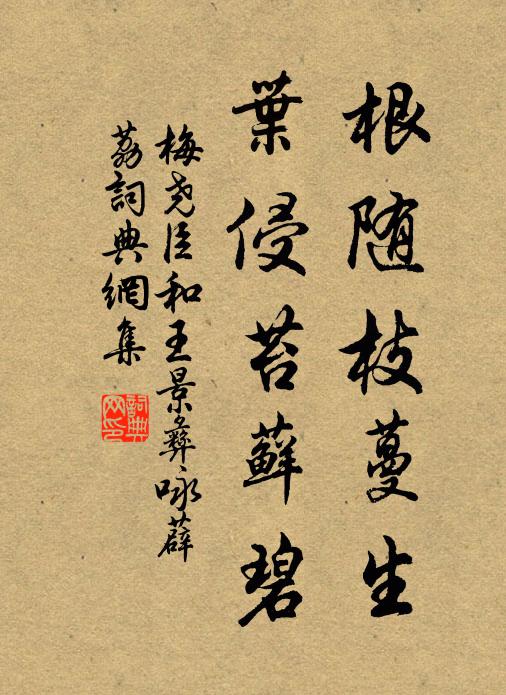 根随枝蔓生
葉侵苔蘚碧
梅堯臣和王景彝咏薜
荔詞典網集
詞典网印